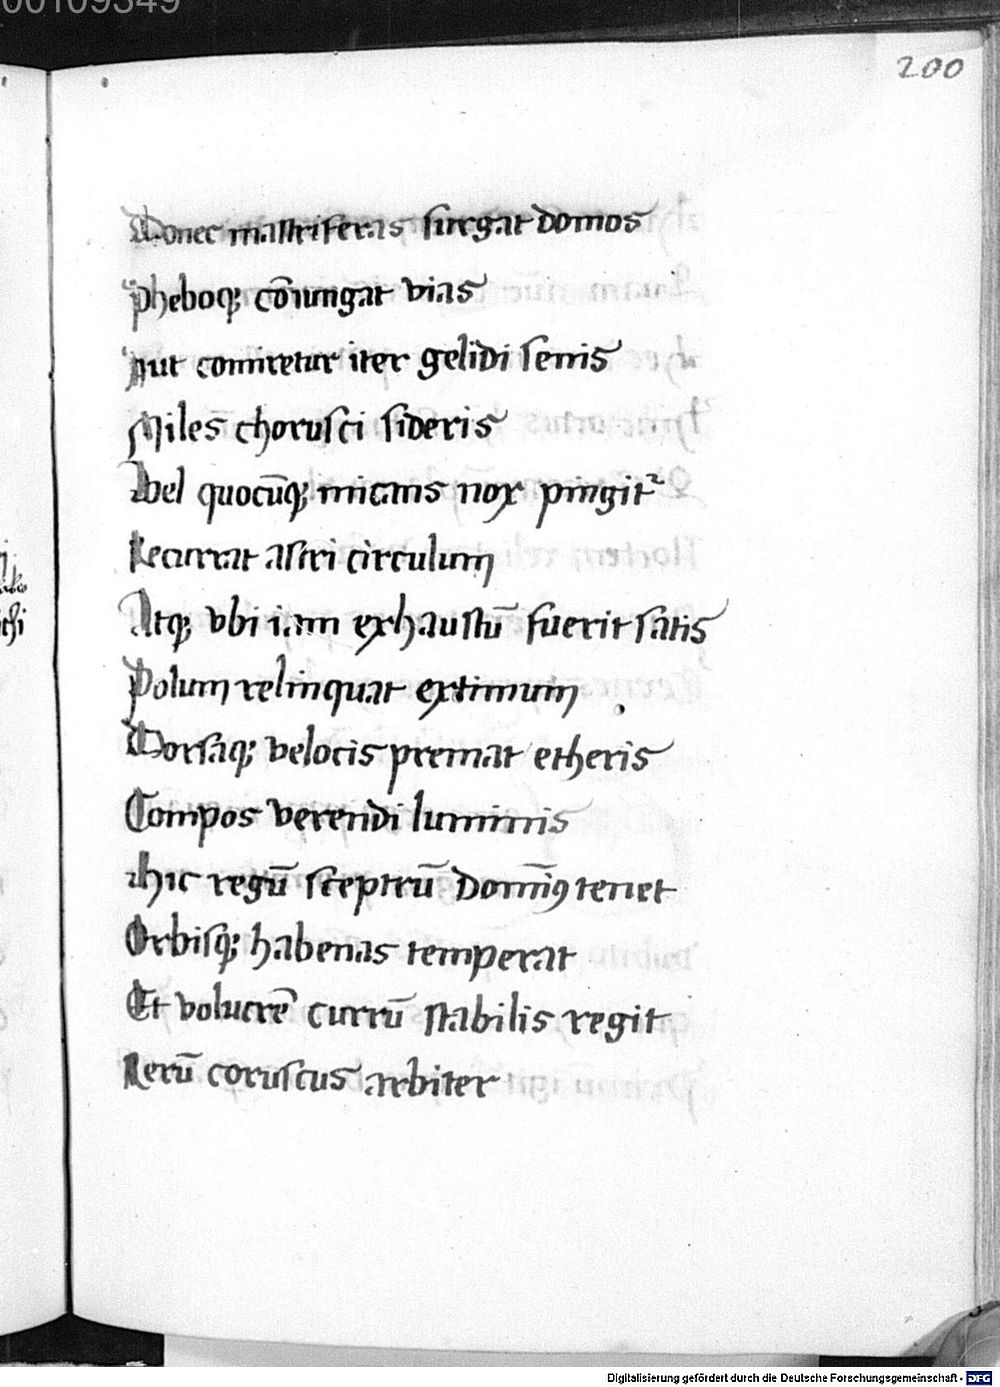 00109349
200
Donec mastriferas surgat domos
pheboq; cōiungat vias
Aut comitetur iter gelidi senis
Miles chorusci sideris
Vel quocūq; micans nox pingit᷑
Recurrat astri circulum
Atq; vbi iam exhaustū fuerit satis
Polum relinquat extimum
Dorsaq; velocis premat etheris
Compos verendi luminis
hic regū sceptrū dominꝯ tenet
Orbisq; habenas temperat
Et volucrē currū stabilis regit
Rerū coruscus arbiter
Digitalisierung gefördert durch die Deutsche Forschungsgemeinschaft - DFG